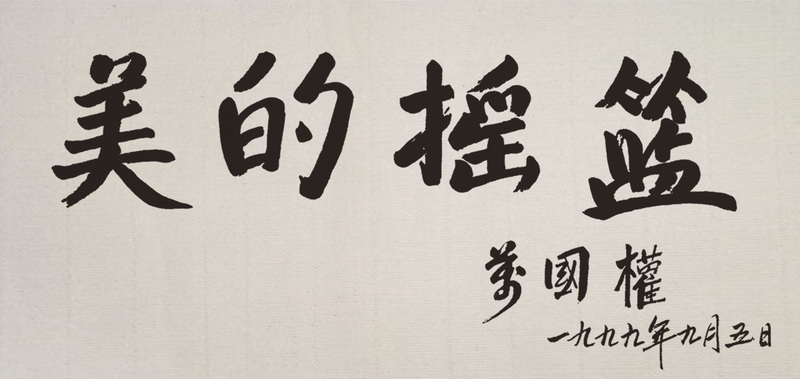 美的摇篮
萬國權
一九九九年九月五日